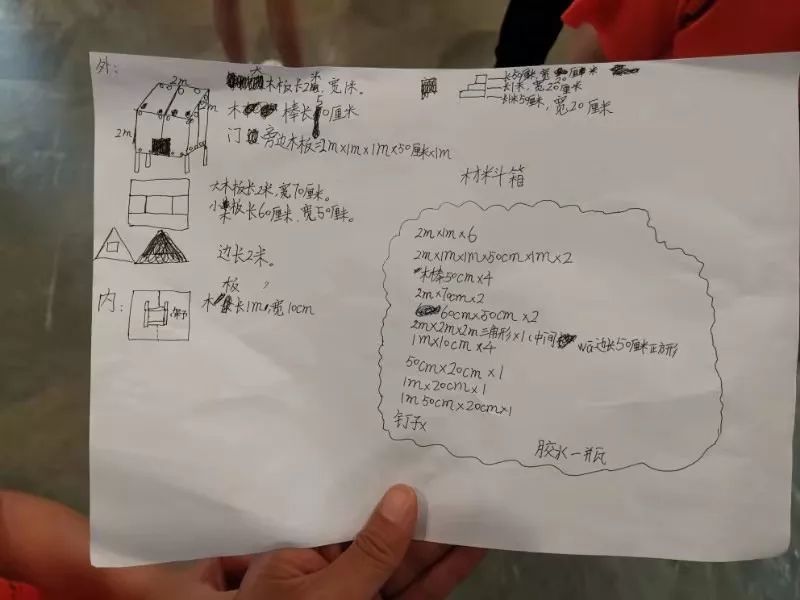 外：
2m
2m
2m
大木板长2米，宽1米。
木棒长50厘米
门旁边木板=2m×1m×1m×50厘米×1m
大木板长2米，宽70厘米。
小木板长60厘米，宽50厘米。
边长2米。
内：
木板长1m，宽10cm
长50厘米，宽20厘米
长1米，宽20厘米
长1米50厘米，宽20厘米
材料箱
2m×1m×6
2m×1m×1m×50cm×1m×2
木棒50cm×4
2m×70cm×2
60cm×50cm×2
2m×2m×2m三角形×1（中间 边长50厘米正方形
1m×10cm×4
50cm×20cm×1
1m×20cm×1
1m50cm×20cm×1
钉子×
胶水一瓶